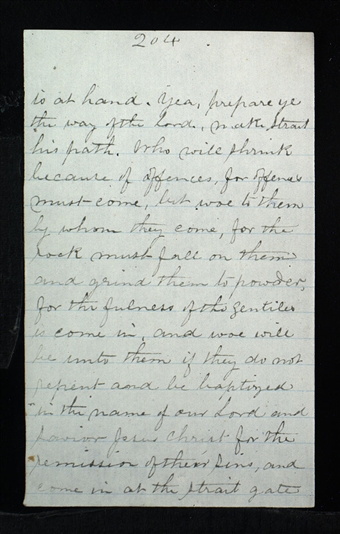 204
is at hand. Yea, prepare ye
the way of the Lord, make strait
his path. Who will shrink
because of offences, for offences
must come, but woe to them
by whom they come, for the
rock must fall on them
and grind them to powder,
for the fulness of the Gentiles
is come in, and woe will
be unto them if they do not
repent and be baptized
in the name of our Lord and
Savior Jesus Christ for the
remission of their sins, and
come in at the strait gate